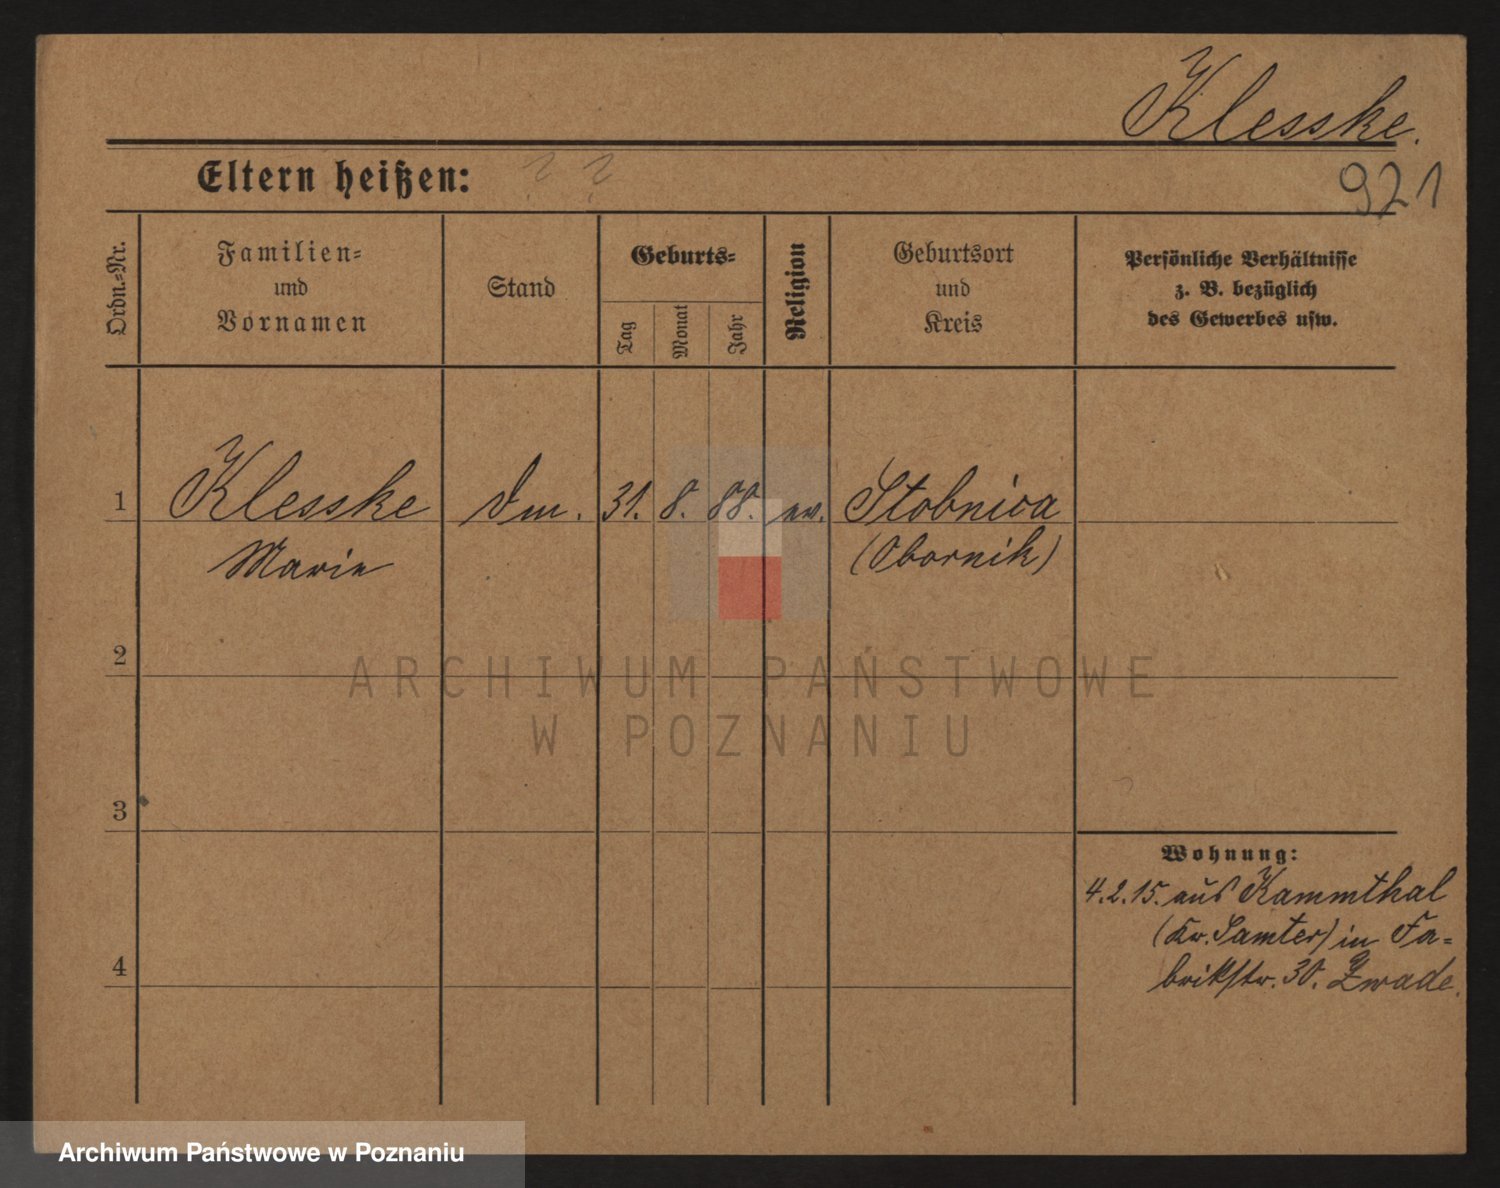 Klesske.
921
Eltern heißen: ? ?
Ordn.-Nr.
Familien-
und
Vornamen
Stand
Geburts-
Tag
Monat
Jahr
Religion
Geburtsort
und
Kreis
Persönliche Verhältnisse
z. B. bezüglich
des Gewerbes usw.
1 Klesske 31. 8. 88. ev. Stobnica
Marie (Obornik)
2
3
4
Wohnung:
4.2.15. aus Kammthal
(Kr. Samter) in Fa-
brikstr. 30.
ARCHIWUM PAŃSTWOWE
W POZNANIU
Archiwum Państwowe w Poznaniu